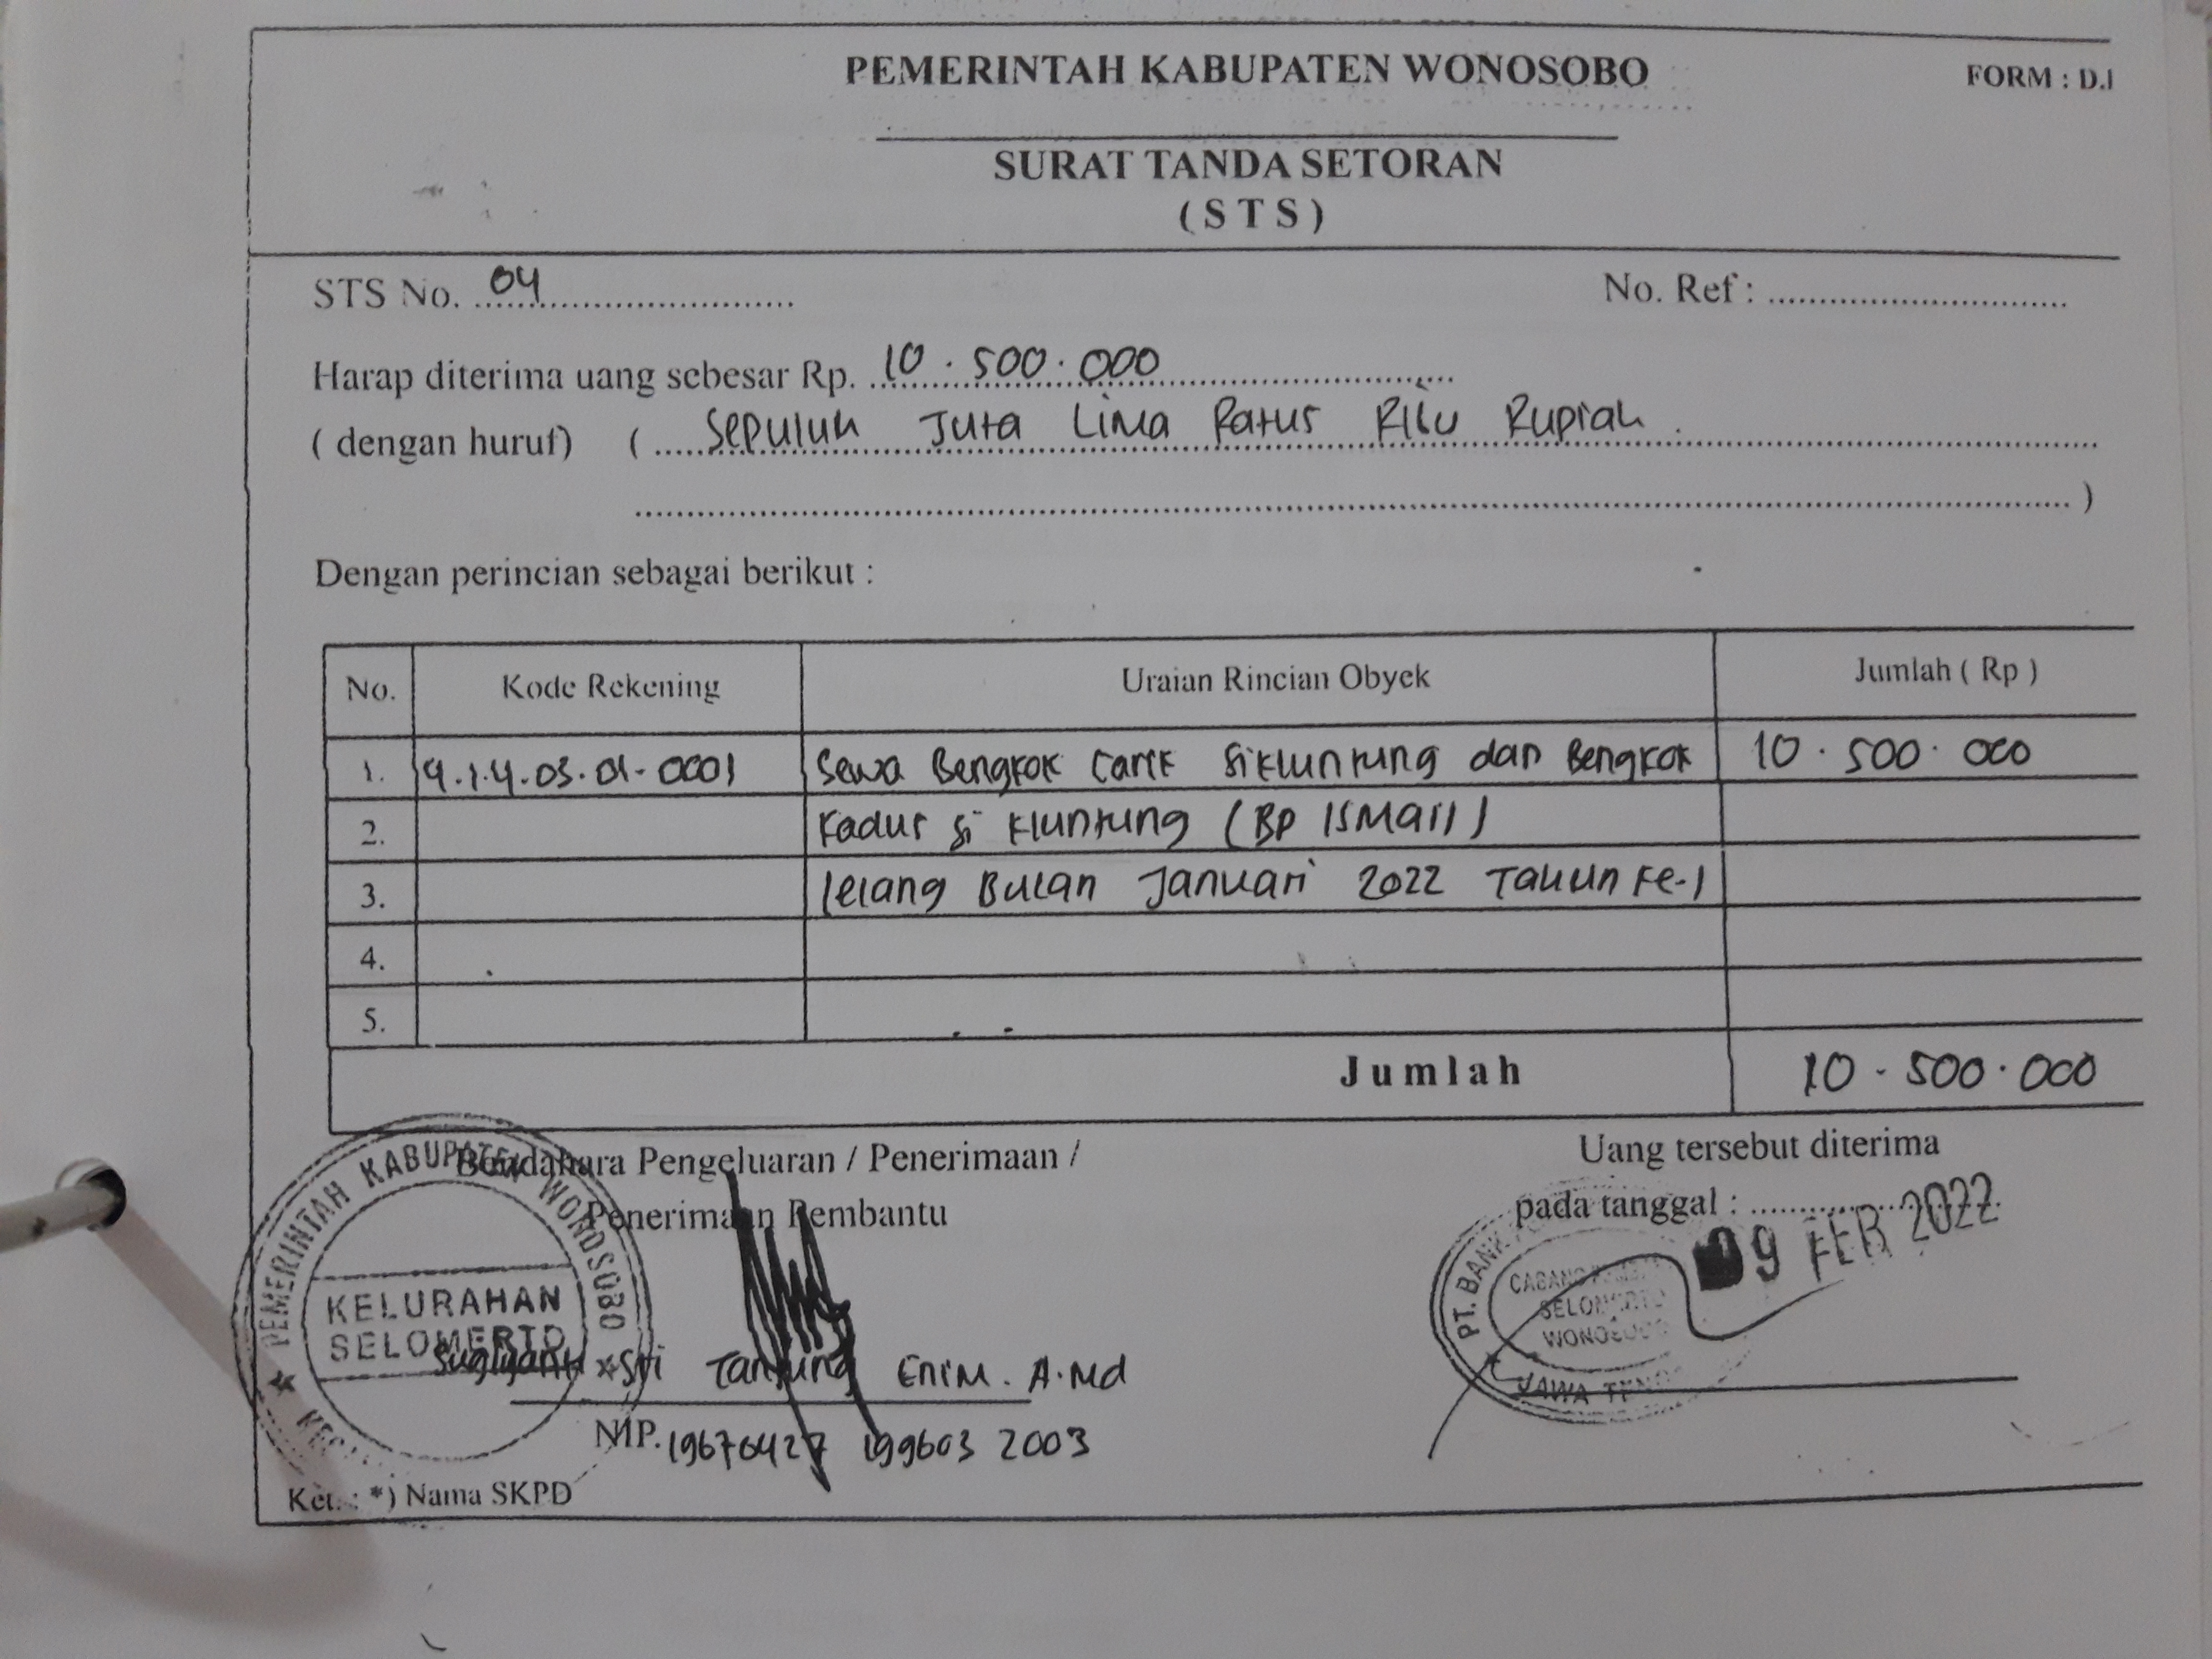 PEMERINTAH KABUPATEN WONOSOBO
FORM : D.I
SURAT TANDA SETORAN
( S T S )
STS No. 04
No. Ref :
Harap diterima uang sebesar Rp. 10.500.000
( dengan huruf) ( Sepuluh Juta Lima Ratus Ribu Rupiah.
)
Dengan perincian sebagai berikut :
No. Kode Rekening Uraian Rincian Obyek Jumlah ( Rp )
1. 4.1.4.03.01.0001 Sewa Bengkok Carik Sikluntung dan Bengkok 10.500.000
2. Kadus Si Kluntung (BP ISMAIL)
3. lelang Bulan Januari 2022 Tahun Ke-1
4.
5.
Jumlah 10.500.000
Bendahara Pengeluaran / Penerimaan /
Penerimaan Pembantu
Uang tersebut diterima
pada tanggal :
09 FEB 2022
PEMERINTAH KABUPATEN WONOSOBO
KELURAHAN
SELOMERTO
PT. BANK
CABANG
SELOMERTO
WONOSOBO
JAWA
Sri Tanjung Enim. A.Md
NIP. 19670427 199603 2003
Ket. : *) Nama SKPD